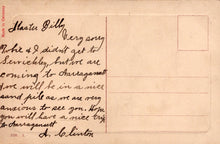 Master Billy
Very sorry
Robie & I didn't get to
Sewickley, but we are
coming to Narragansett
you will be in a nice
sand pile as we are very
anxious to see you. Hope
you will have a nice trip
to Narragansett
A. Clinton
Made in Germany